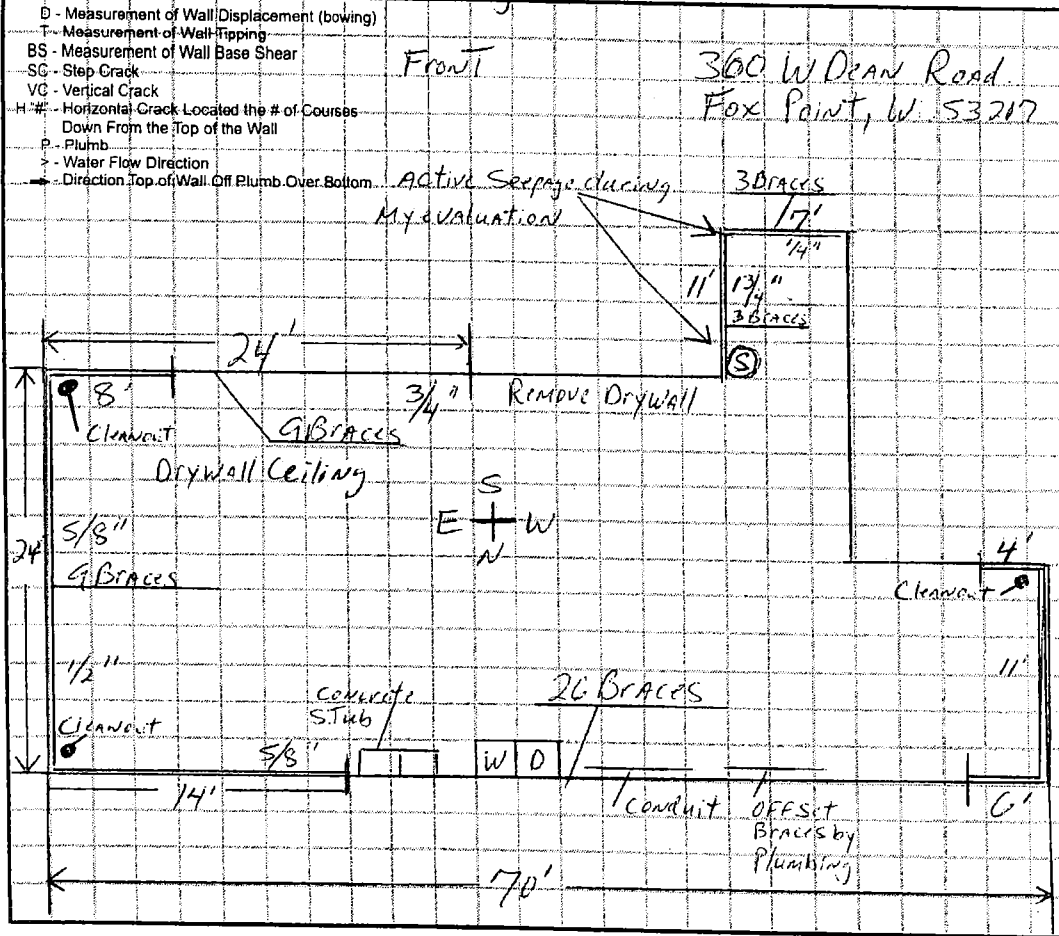 D - Measurement of Wall Displacement (bowing)
T - Measurement of Wall Tipping
BS - Measurement of Wall Base Shear
SC - Step Crack
VC - Vertical Crack
H "#" - Horizontal Crack Located the # of Courses
Down From the Top of the Wall
P - Plumb
> - Water Flow Direction
➞ - Direction Top of Wall Off Plumb Over Bottom
Front
360 W Dean Road
Fox Point, W. 53217
Active Seepage during
My evaluation
3 Braces
7'
1/4"
11'
1 3/4"
3 Braces
S
24'
8'
3/4"
Remove Drywall
Cleanout
9 Braces
Drywall Ceiling
S
E W
N
5/8"
24'
9 Braces
4'
Cleanout
11'
1/2"
Cleanout
Concrete
Stub
26 Braces
5/8"
W D
14'
Conduit
OFFset
Braces by
Plumbing
6'
70'